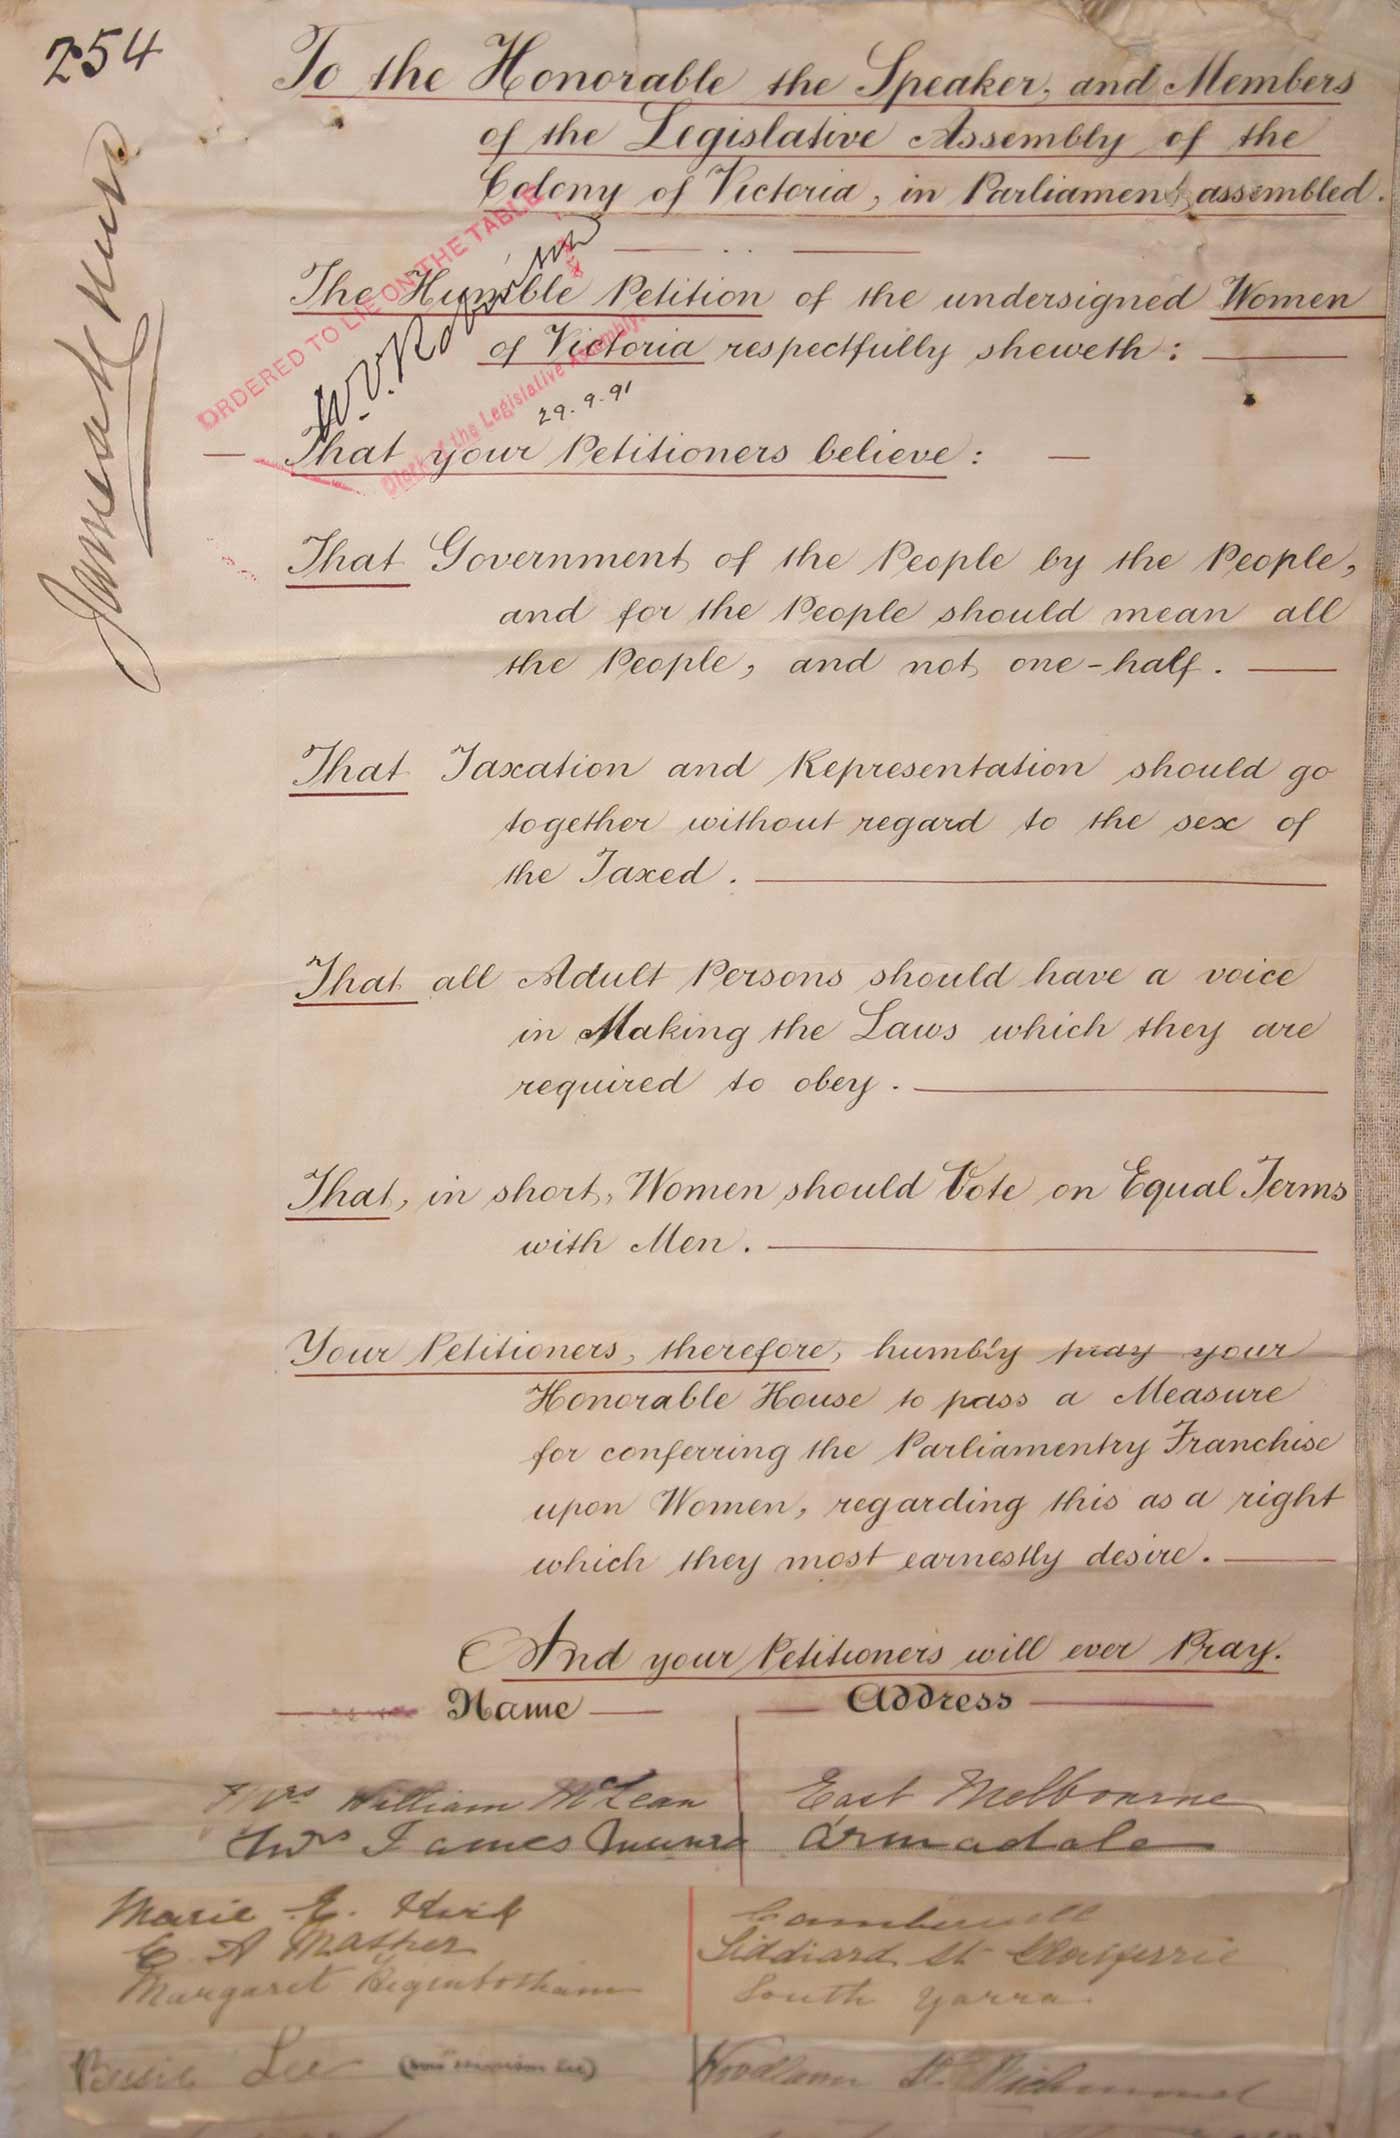 254
To the Honorable the Speaker, and Members
of the Legislative Assembly of the
Colony of Victoria, in Parliament assembled.
ORDERED TO LIE ON THE TABLE
The Humble Petition of the undersigned Women
of Victoria respectfully sheweth:
Clerk of the Legislative Assembly.
29.9.91
That your Petitioners believe:
That Government of the People by the People,
and for the People should mean all
the People, and not one-half.
That Taxation and Representation should go
together without regard to the sex of
the Taxed.
That all Adult Persons should have a voice
in Making the Laws which they are
required to obey.
That, in short, Women should Vote on Equal Terms
with Men.
Your Petitioners, therefore, humbly pray your
Honorable House to pass a Measure
for conferring the Parliamentry Franchise
upon Women, regarding this as a right
which they most earnestly desire.
And your Petitioners will ever Pray.
Name Address
Mrs William McLean East Melbourne
Mrs James Munro Armadale
Marie E. Kirk Camberwell
E A Mather Liddiard St
Margaret Higinbotham South Yarra.
Bessie Lee St Richmond